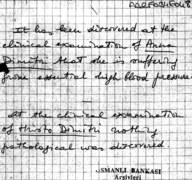 It has been discovered at the
clinical examination of Anna
Dimitri that she is suffering
from essential high blood pressure
At the clinical examination
of Hristo Dimitri nothing
pathological was discovered
OSMANLI BANKASI
Arşivleri